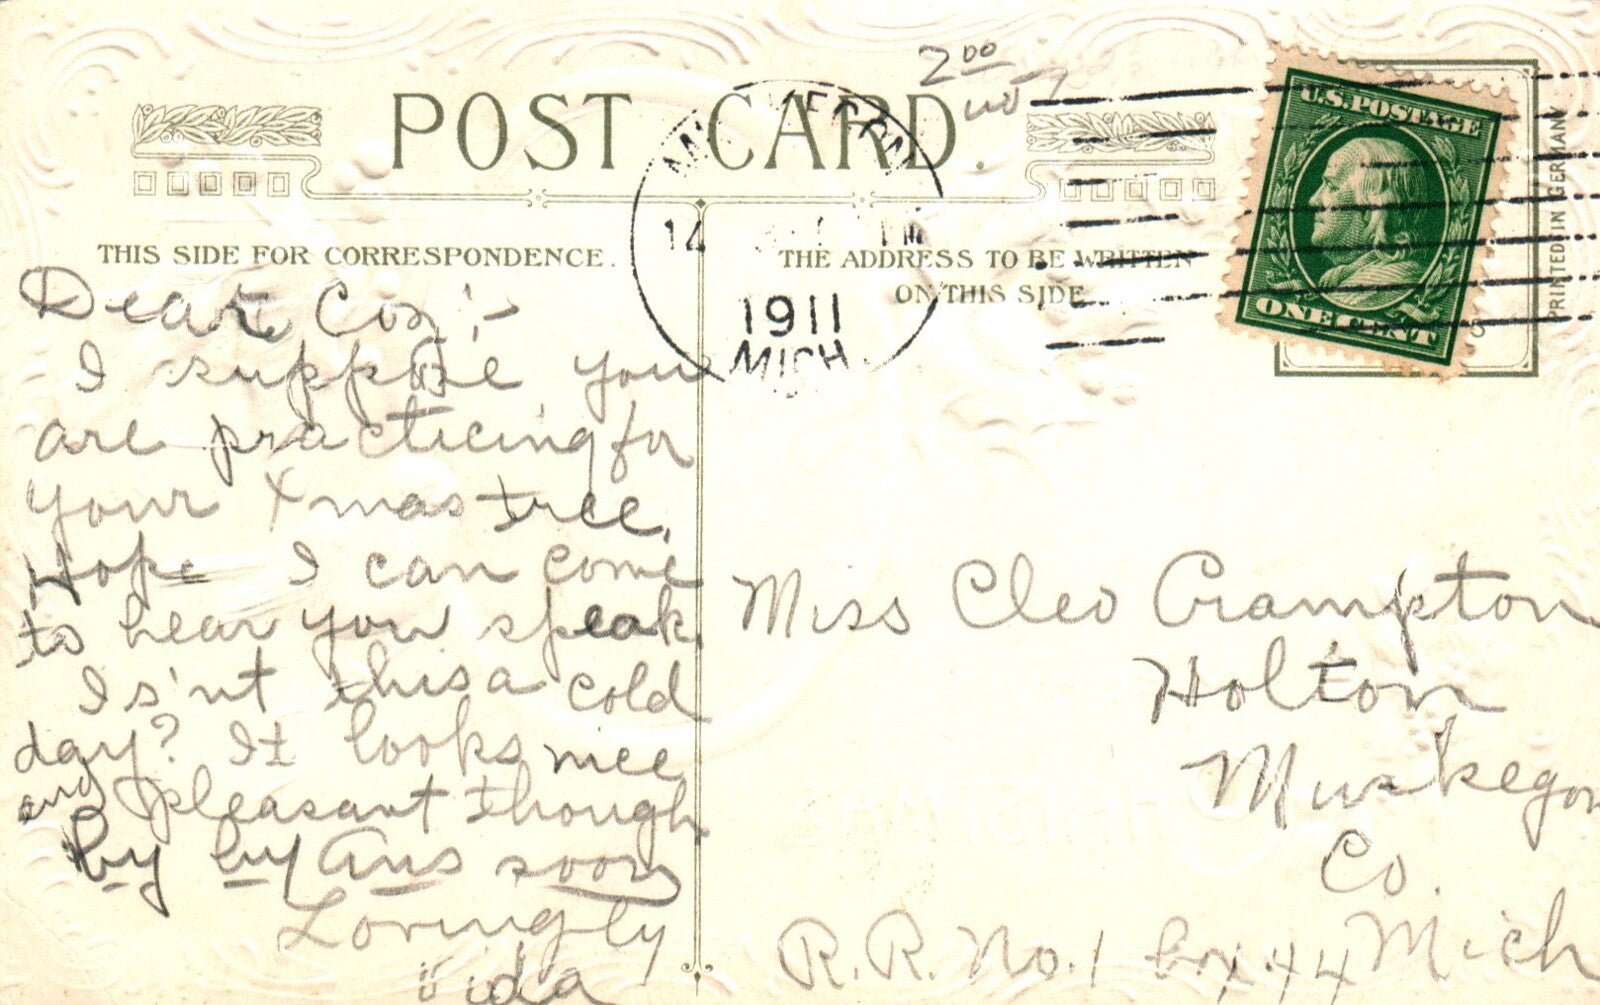 2 00
POST CARD.
14
1911
MICH.
U.S. POSTAGE
ONE CENT
PRINTED IN GERMANY
THIS SIDE FOR CORRESPONDENCE.
THE ADDRESS TO BE WRITTEN
ON THIS SIDE
Dear Coz :-
I suppose you
are practicing for
your Xmas tree.
Hope I can come
to hear you speak.
Is'nt this a cold
day? It looks nice
and pleasant though
by by Ans soon
Lovingly
Vida
Miss Cleo Crampton
Holton
Muskegon
Co.
R.R. No. 1 box 44 Mich